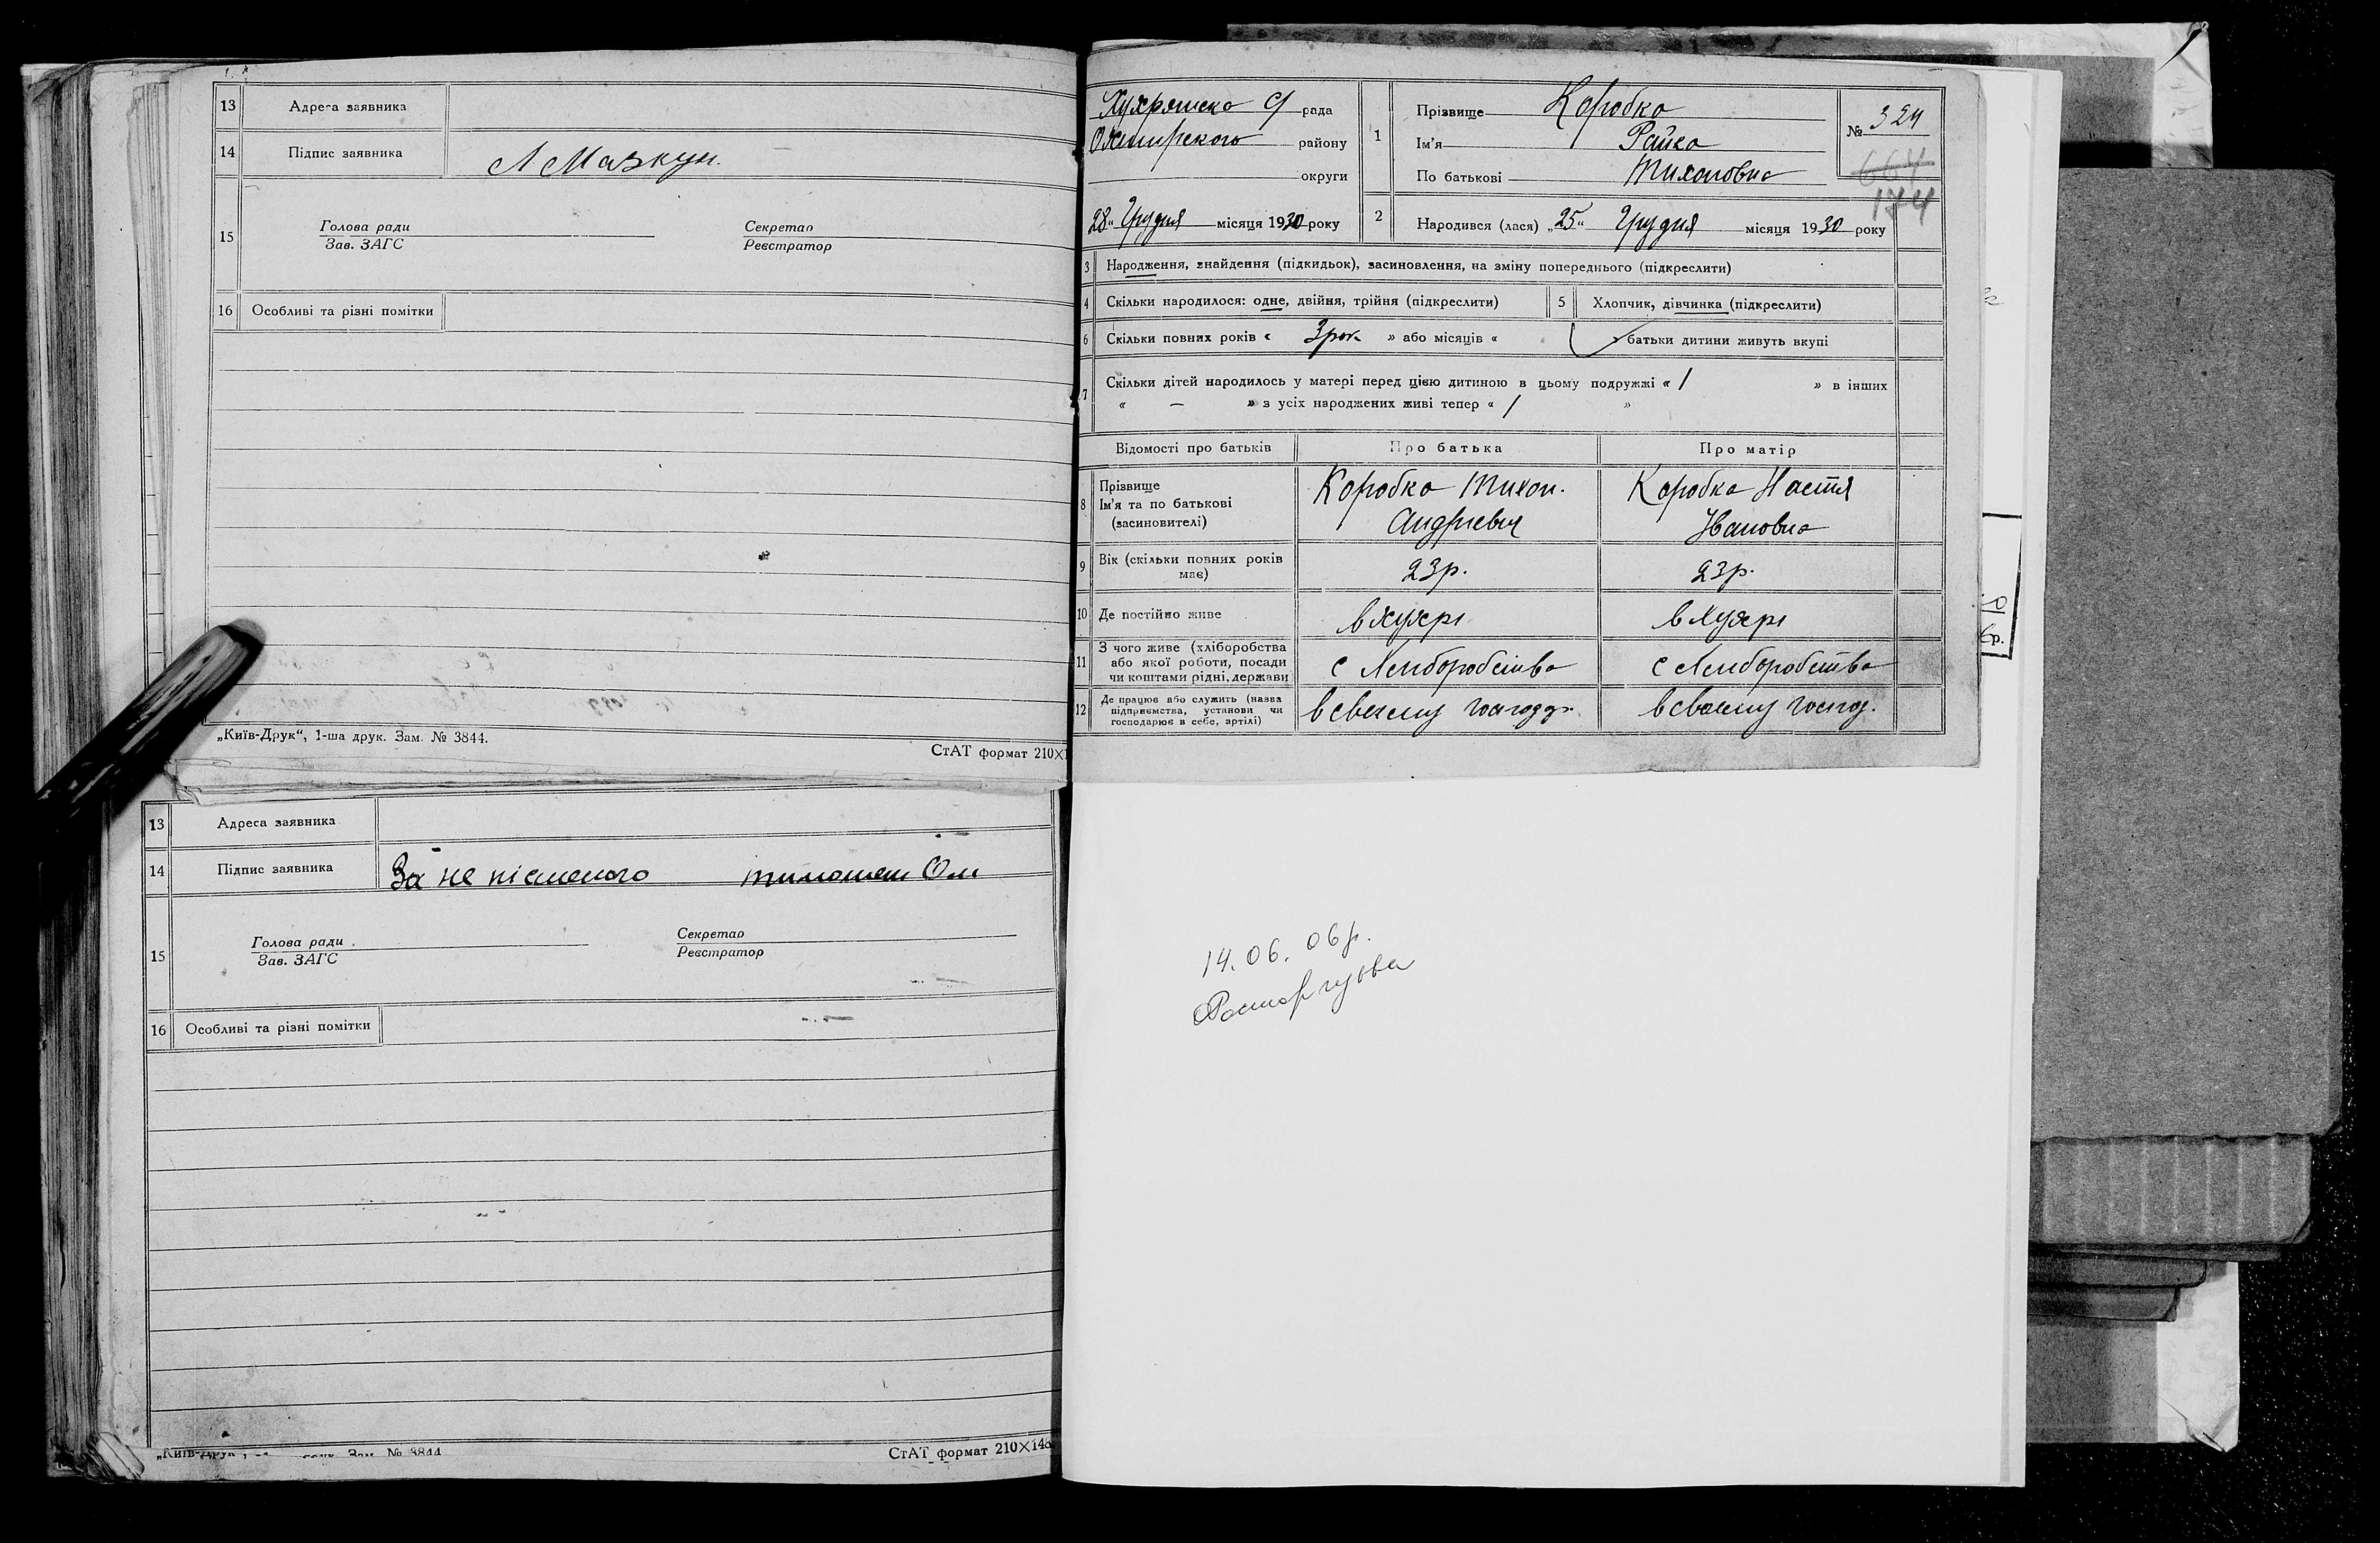 13 Адреса заявника
14 Підпис заявника Л Мазкун.
15 Голова ради Секретар
Зав. ЗАГС Реєстратор
16 Особливі та різні помітки
„Київ-Друк“, 1-ша друк. Зам. № 3844.
СтАТ формат 210×1
13 Адреса заявника
14 Підпис заявника За не пісменого тимошен
15 Голова ради Секретар
Зав. ЗАГС Реєстратор
16 Особливі та різні помітки
„Київ-Друк Зам. № 3844
СтАТ формат 210×148
Хухрянська С/ рада
Охтирского району
округи
28 " Грудня місяця 1930 року
1 Прізвище Коробка
Ім'я Райка
По батькові Тихоновна
№ 324
664
174
2 Народився (лася) „25" Грудня місяця 1930 року
3 Народження, знайдення (підкидьок), засиновлення, на зміну попереднього (підкреслити)
4 Скільки народилося: одне, двійня, трійня (підкреслити) 5 Хлопчик, дівчинка (підкреслити)
6 Скільки повних років « 3 рок » або місяців « » батьки дитини живуть вкупі
7 Скільки дітей народилось у матері перед цією дитиною в цьому подружжі « 1 » в інших
« – » з усіх народжених живі тепер « 1 »
Відомості про батьків Про батька Про матір
8 Прізвище
Ім'я та по батькові
(засновителі)
Коробка Тихон.
Андрієвич
Коробка Настя
Івановна
9 Вік (скільки повних років
має)
23р. 23р.
10 Де постійно живе в Хухрі в Хухрі
11 З чого живе (хліборобства
або якої роботи, посади
чи коштами рідні, держави
с Хлиборобства с Хлиборобства
12 Де працює або служить (назва
підприємства, установи чи
господарює в себе, артілі)
в своему господ. в своему господ.
14.06.06р.
Расторгуєва